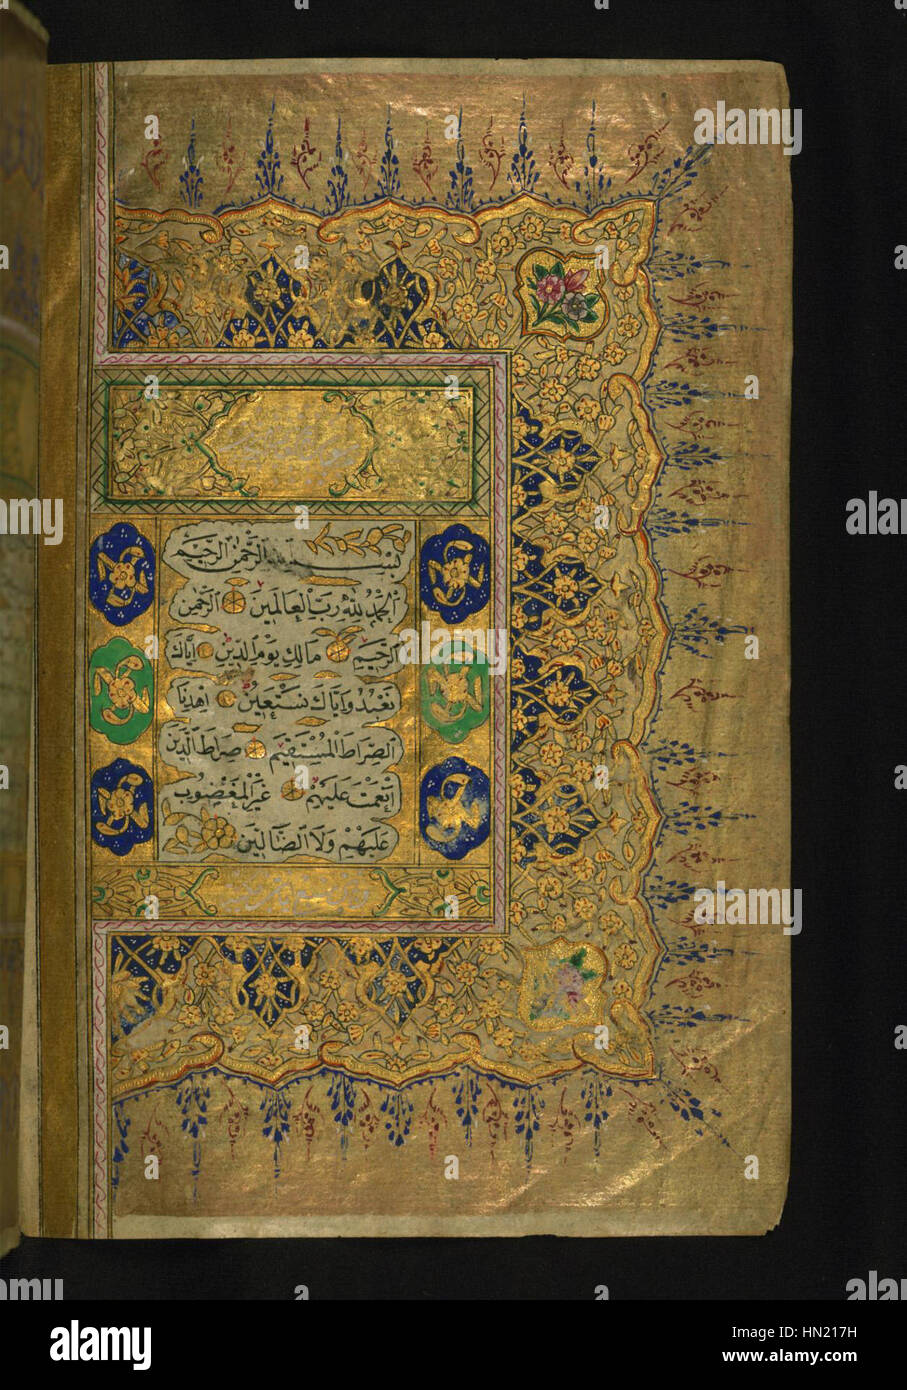 بِسْمِ اللهِ الرَّحْمٰنِ الرَّحِيمِ
اَلْحَمْدُ لِلّٰهِ رَبِّ الْعَالَمِينَ الرَّحْمٰنِ
الرَّحِيمِ مَالِكِ يَوْمِ الدِّينِ اِيَّاكَ
نَعْبُدُ وَاِيَّاكَ نَسْتَعِينُ اِهْدِنَا
الصِّرَاطَ الْمُسْتَقِيمَ صِرَاطَ الَّذِينَ
اَنْعَمْتَ عَلَيْهِمْ غَيْرِ الْمَغْضُوبِ
عَلَيْهِمْ وَلَا الضَّالِّينَ
a alamy stock photo
alamy
Image ID: HN217H
www.alamy.com